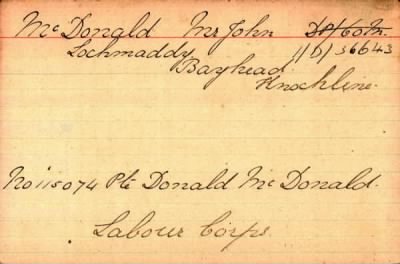 McDonald Mr John
Lochmaddy 11/D/36643
Bayhead
Knockline.
No 115074 Pte Donald McDonald.
Labour Corps